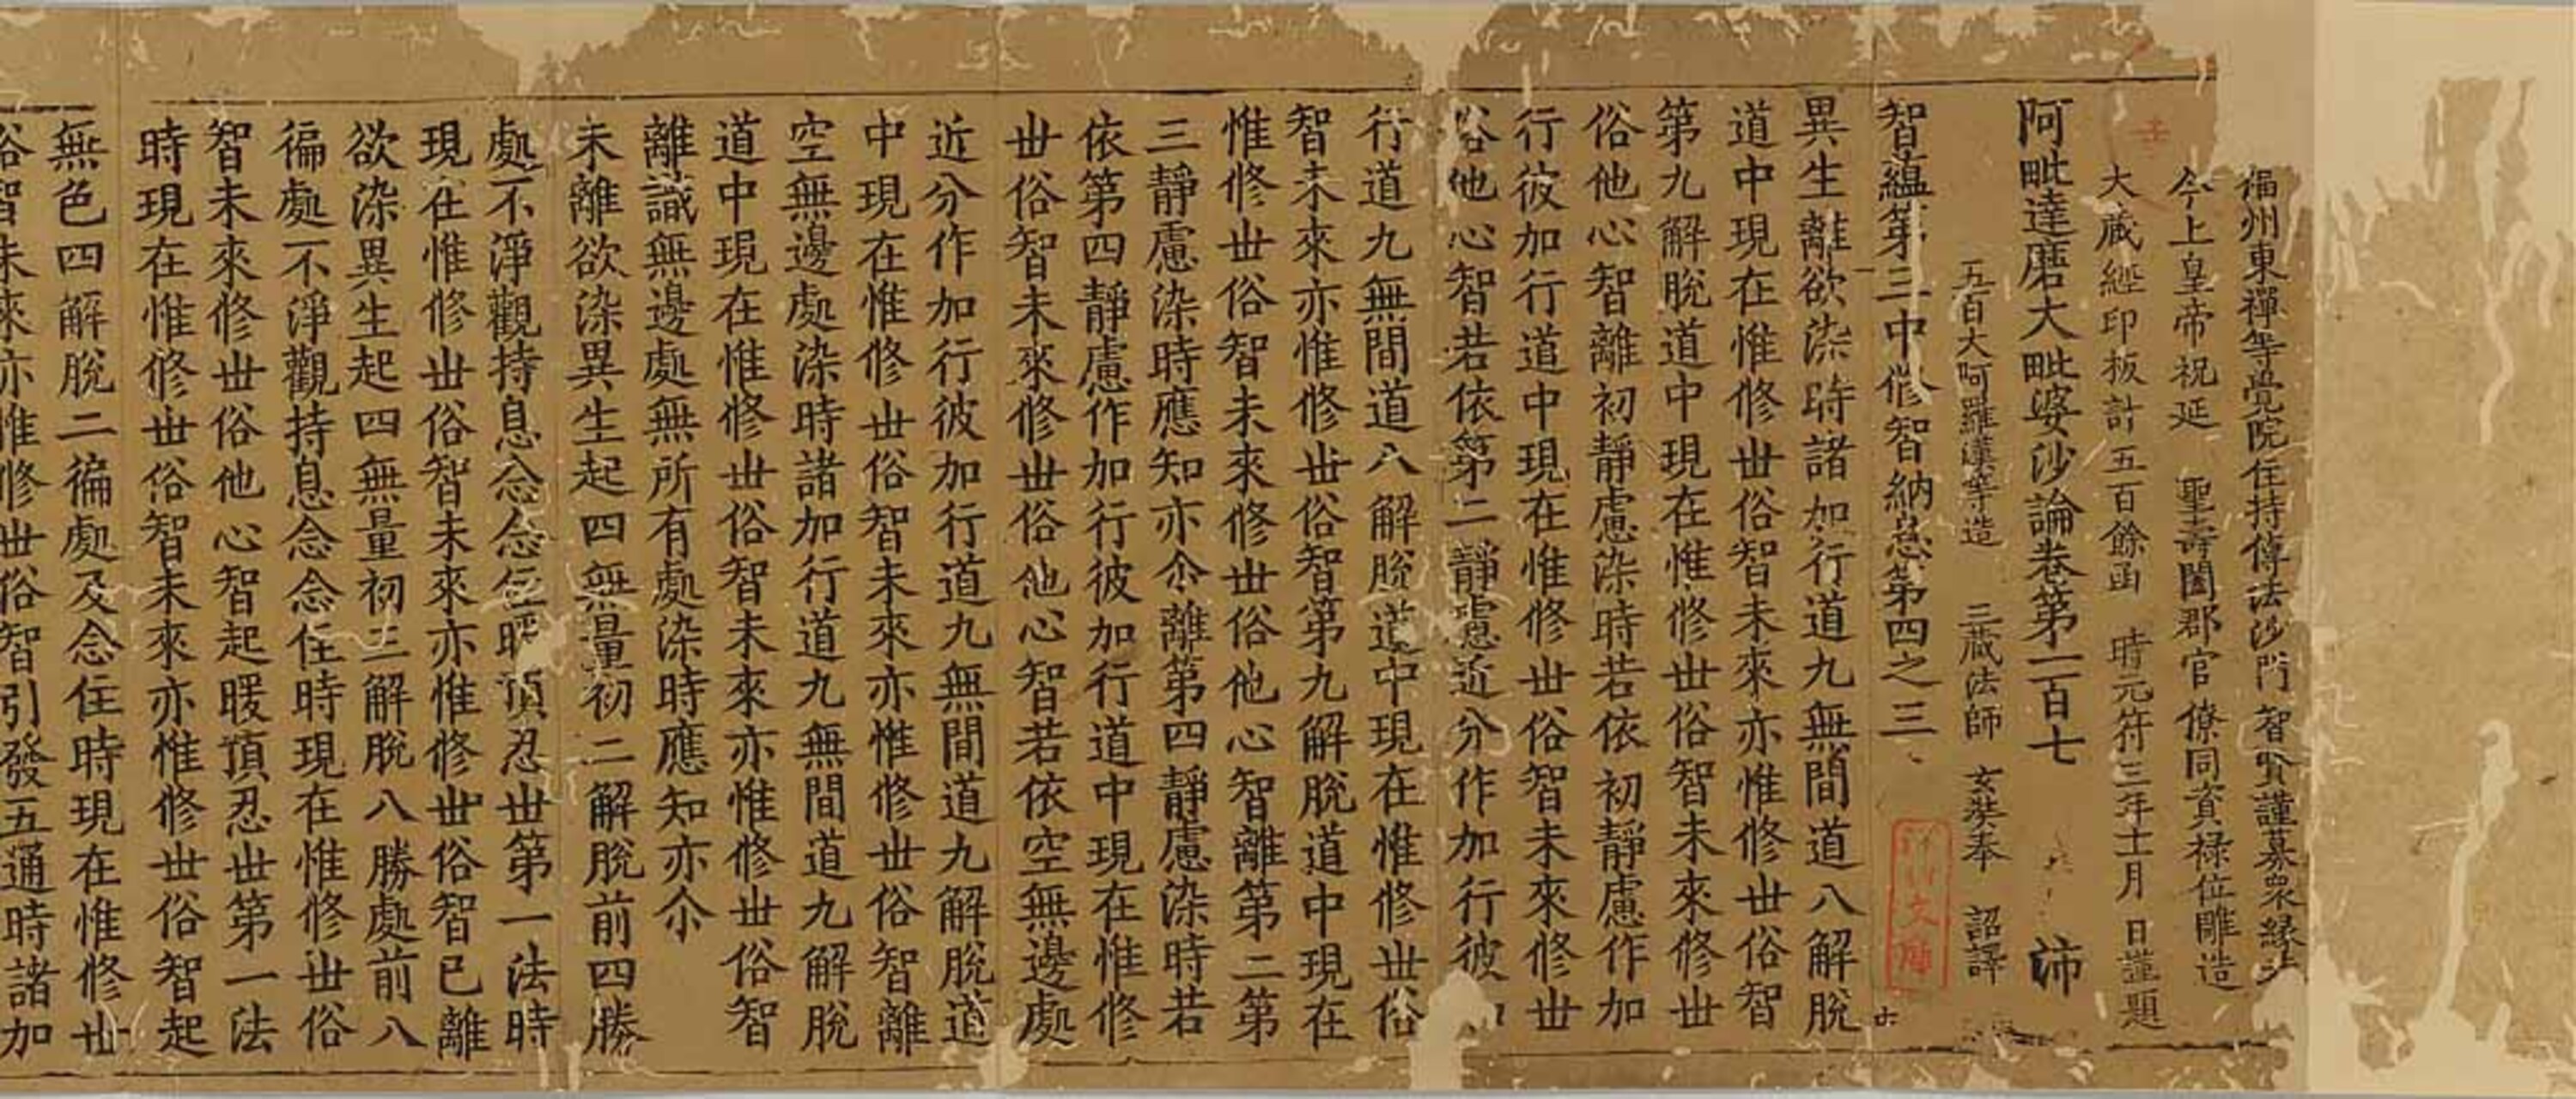 福州東禪等覺院住持傳法沙門智賢謹募衆緣
今上皇帝祝延 聖壽闔郡官僚同資禄位雕造
大藏經印板計五百餘函 時元符三年十二月 日謹題
阿毗達磨大毗婆沙論卷第一百七
五百大阿羅漢等造 三藏法師 玄奘奉 詔譯
智蘊第三中修智納息第四之三
異生離欲染時諸加行道九無間道八解脫
道中現在惟修世俗智未來亦惟修世俗智
第九解脫道中現在惟修世俗智未來修世
俗他心智離初靜慮染時若依初靜慮作加
行彼加行道中現在惟修世俗智未來修世
俗他心智若依第二靜慮近分作加行彼加
行道九無間道八解脫道中現在惟修世俗
智未來亦惟修世俗智第九解脫道中現在
惟修世俗智未來修世俗他心智離第二第
三靜慮染時應知亦尒離第四靜慮染時若
依第四靜慮作加行彼加行道中現在惟修
世俗智未來修世俗他心智若依空無邊處
近分作加行彼加行道九無間道九解脫道
中現在惟修世俗智未來亦惟修世俗智離
空無邊處染時諸加行道九無間道九解脫
道中現在惟修世俗智未來亦惟修世俗智
離識無邊處無所有處染時應知亦尒
未離欲染異生起四無量初二解脫前四勝
處不淨觀持息念念住暖頂忍世第一法時
現在惟修世俗智未來亦惟修世俗智已離
欲染異生起四無量初三解脫八勝處前八
徧處不淨觀持息念念住時現在惟修世俗
智未來修世俗他心智起暖頂忍世第一法
時現在惟修世俗智未來亦惟修世俗智起
無色四解脫二徧處及念住時現在惟修世
俗智未來亦惟修世俗智引發五通時諸加